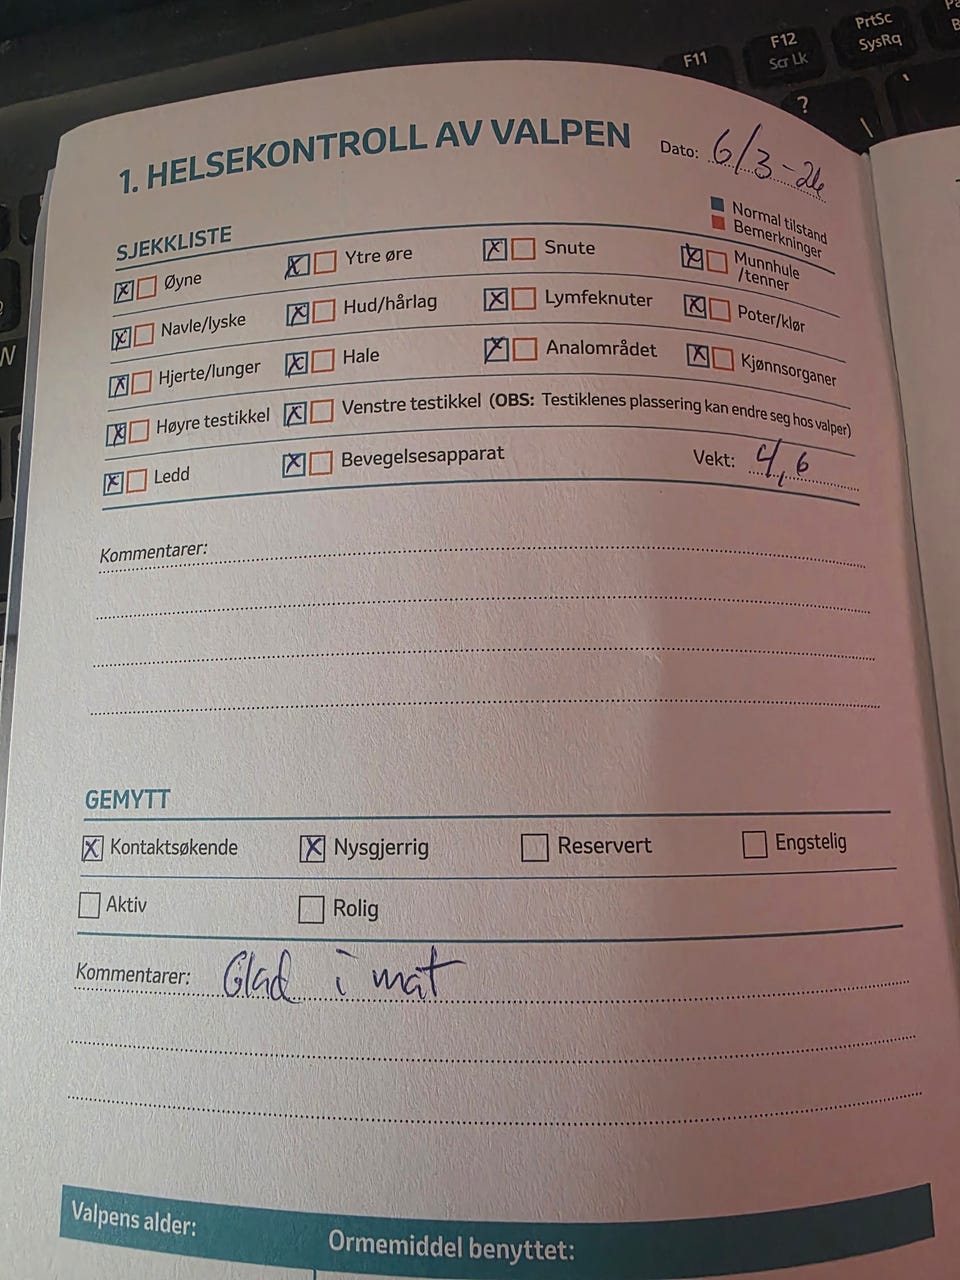 F11
F12
Scr Lk
PrtSc
SysRq
?
\
1. HELSEKONTROLL AV VALPEN
Dato: 6/3-26
Normal tilstand
Bemerkninger
SJEKKLISTE
Øyne Ytre øre Snute Munnhule /tenner
Navle/lyske Hud/hårlag Lymfeknuter Poter/klør
Hjerte/lunger Hale Analområdet Kjønnsorganer
Høyre testikkel Venstre testikkel (OBS: Testiklenes plassering kan endre seg hos valper)
Ledd Bevegelsesapparat Vekt: 4,6
Kommentarer:
GEMYTT
Kontaktsøkende Nysgjerrig Reservert Engstelig
Aktiv Rolig
Kommentarer: Glad i mat
Valpens alder: Ormemiddel benyttet: